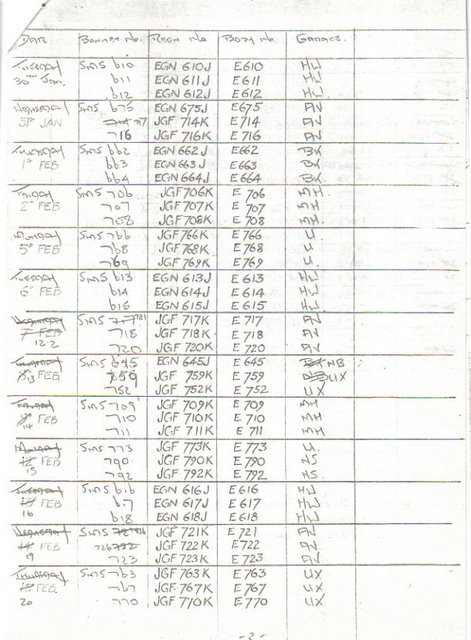 DATE. BONNET No. REGN No BODY No. GARAGE.
TUESDAY SMS 610 EGN 610J E610 HW
30TH JAN. 611 EGN 611J E611 HW
612 EGN 612J E612 HW
WEDNESDAY SMS 675 EGN 675J E675 AV
31ST JAN 717 JGF 714K E714 AV
716 JGF 716K E716 AV
THURSDAY SMS 662 EGN 662J E662 BK
1ST FEB 663 EGN 663J E663 BK
664 EGN 664J E664 BK
FRIDAY SMS 706 JGF 706K E706 MH
2ND FEB 707 JGF 707K E707 MH
708 JGF 708K E708 MH
MONDAY SMS 766 JGF 766K E766 U
5TH FEB 768 JGF 768K E768 U
769 JGF 769K E769 U.
TUESDAY SMS 613 EGN 613J E613 HW
6TH FEB 614 EGN 614J E614 HW
615 EGN 615J E615 HW
WEDNESDAY SMS 717 721 JGF 717K E717 AV
7TH FEB 718 JGF 718K E718 AV
12.2 720 JGF 720K E720 AV
SMS 645 EGN 645J E645 NB
13 FEB 759 JGF 759K E759 UX
752 JGF 752K E752 UX
SMS 709 JGF 709K E709 MH
FEB 710 JGF 710K E710 MH
14 711 JGF 711K E711 MH
MONDAY SMS 773 JGF 773K E773 U.
FEB 790 JGF 790K E790 NS
15 792 JGF 792K E792 NS
TUESDAY SMS 616 EGN 616J E616 HW
FEB 617 EGN 617J E617 HW
16 618 EGN 618J E618 HW
WEDNESDAY SMS JGF 721K E721 AV
FEB 722 JGF 722K E722 AV
19 723 JGF 723K E723 AV
THURSDAY SMS 763 JGF 763K E763 UX
FEB. 767 JGF 767K E767 UX
20 770 JGF 770K E770 UX
-2-